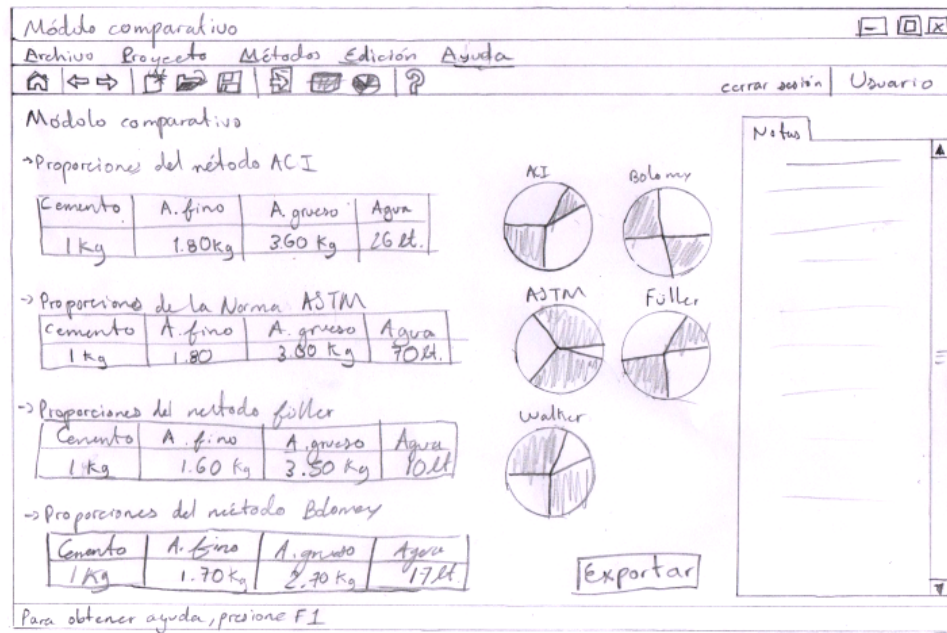 Módulo comparativo
Archivo Proyecto Métodos Edición Ayuda
cerrar sesión Usuario
Módolo comparativo
→Proporciones del método ACI
Cemento A. fino A. grueso Agua
1 Kg 1.80 kg 3.60 Kg 26 lt.
→ Proporciones de la Norma ASTM
Cemento A. fino A. grueso Agua
1 Kg 1.80 Kg 70 lt.
→ Proporciones del método füller
Cemento A. fino A. grueso Agua
1 Kg 1.60 Kg 3.50 Kg 10 lt
→ Proporciones del método Bolomey
Cemento A. fino A. grueso Agua
1 Kg 1.70 Kg 2.70 Kg 17 lt.
ACI Bolomey
ASTM Füller
Walker
Exportar
Notas
Para obtener ayuda, presione F1